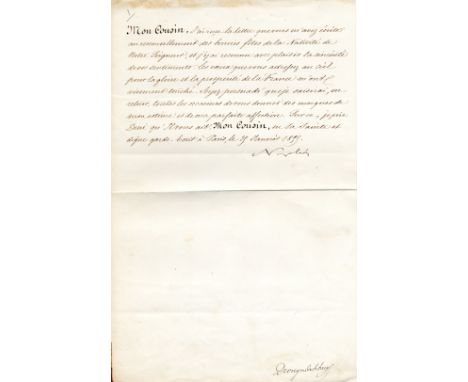 Mon Cousin, J'ai reçu la lettre que vous m'avez écrite
au renouvellement des bonnes fêtes de la Nativité de
Notre Seigneur et j'y ai reconnu avec plaisir la sincérité
de vos sentiments. Les vœux que vous adressez au ciel
pour la gloire et la prospérité de la France m'ont
vivement touché. Soyez persuadé que je saisirai, en
retour, toutes les occasions de vous donner des marques de
mon estime et de ma parfaite affection. Sur ce, je prie
Dieu qu'Il vous ait, Mon Cousin, en Sa Sainte et
digne garde. Écrit à Paris, le Janvier
Drouyn de Lhuys